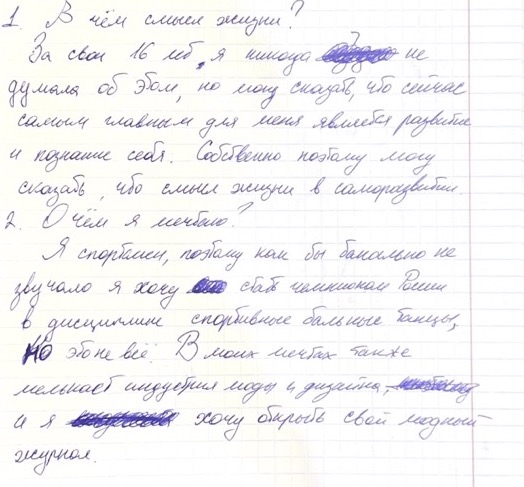 1. В чём смысл жизни?
За свои 16 лет, я никогда не
думала об этом, но могу сказать, что сейчас
самим главным для меня является развитие
и познание себя. Собственно поэтому могу
сказать, что смысл жизни в саморазвитии.
2. О чём я мечтаю?
Я спортсмен, поэтому как бы банально не
звучало я хочу стать чемпионом России
в дисциплине спортивные бальные танцы,
но это не всё. В моих мечтах также
мелькает индустрия моды и дизайна,
и я хочу открыть свой модный
журнал.